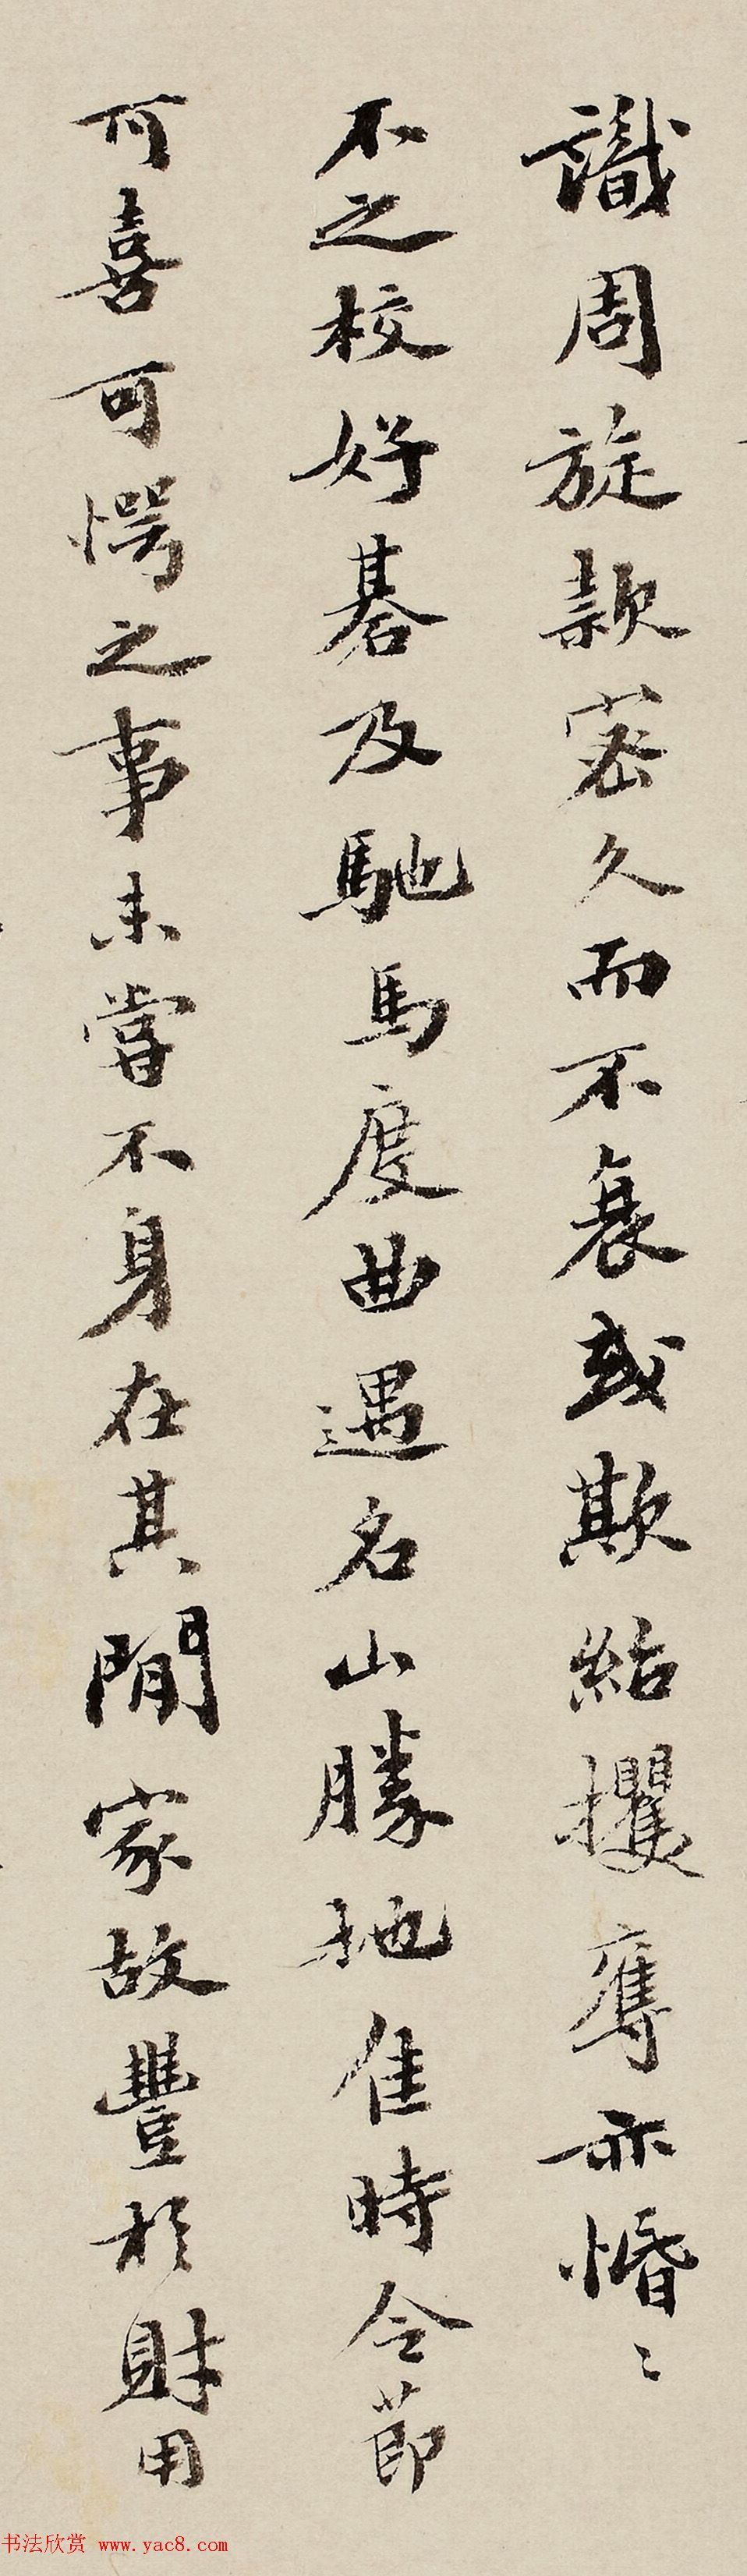 識周旋款密久而不衰或欺紿攫奪亦惛〻
不之校好碁及馳馬度曲遇名山勝地佳時令節
可喜可愕之事未嘗不身在其間家故豐於財用
书法欣赏 www.yac8.com